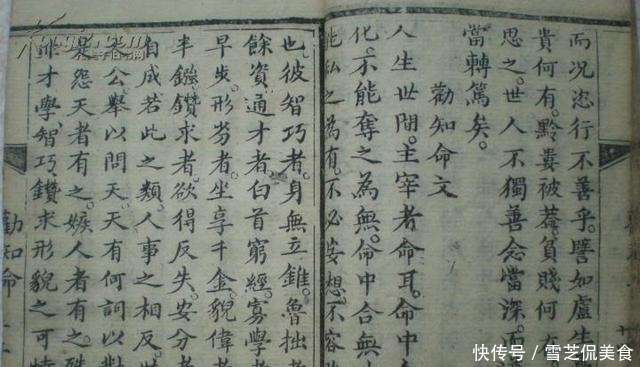 而況恣行不善乎。譬如盧生
貴何有。黔婁被。貧賤何
思之。世人不獨善念當深。而
當轉篤矣。
勸知命文
人生世間。主宰者命耳。命中
化。不能奪之為無。命中合無
能私之為有。不必妄想。不容
也。彼智巧者。身無立錐。魯拙者
餘資。通才者。白首窮經。寡學者
早發。形劣者。坐享千金。貌偉者
半鏹。鑽求者。欲得反失。安分者
自成。若此之類。人事之相反。
天公舉以問天。天有何詞以對
是怨天者有之。嫉人者有之。殊
非才學。智巧鑽求形貌之可恃
勸知命
快传号 / 雪芝侃美食